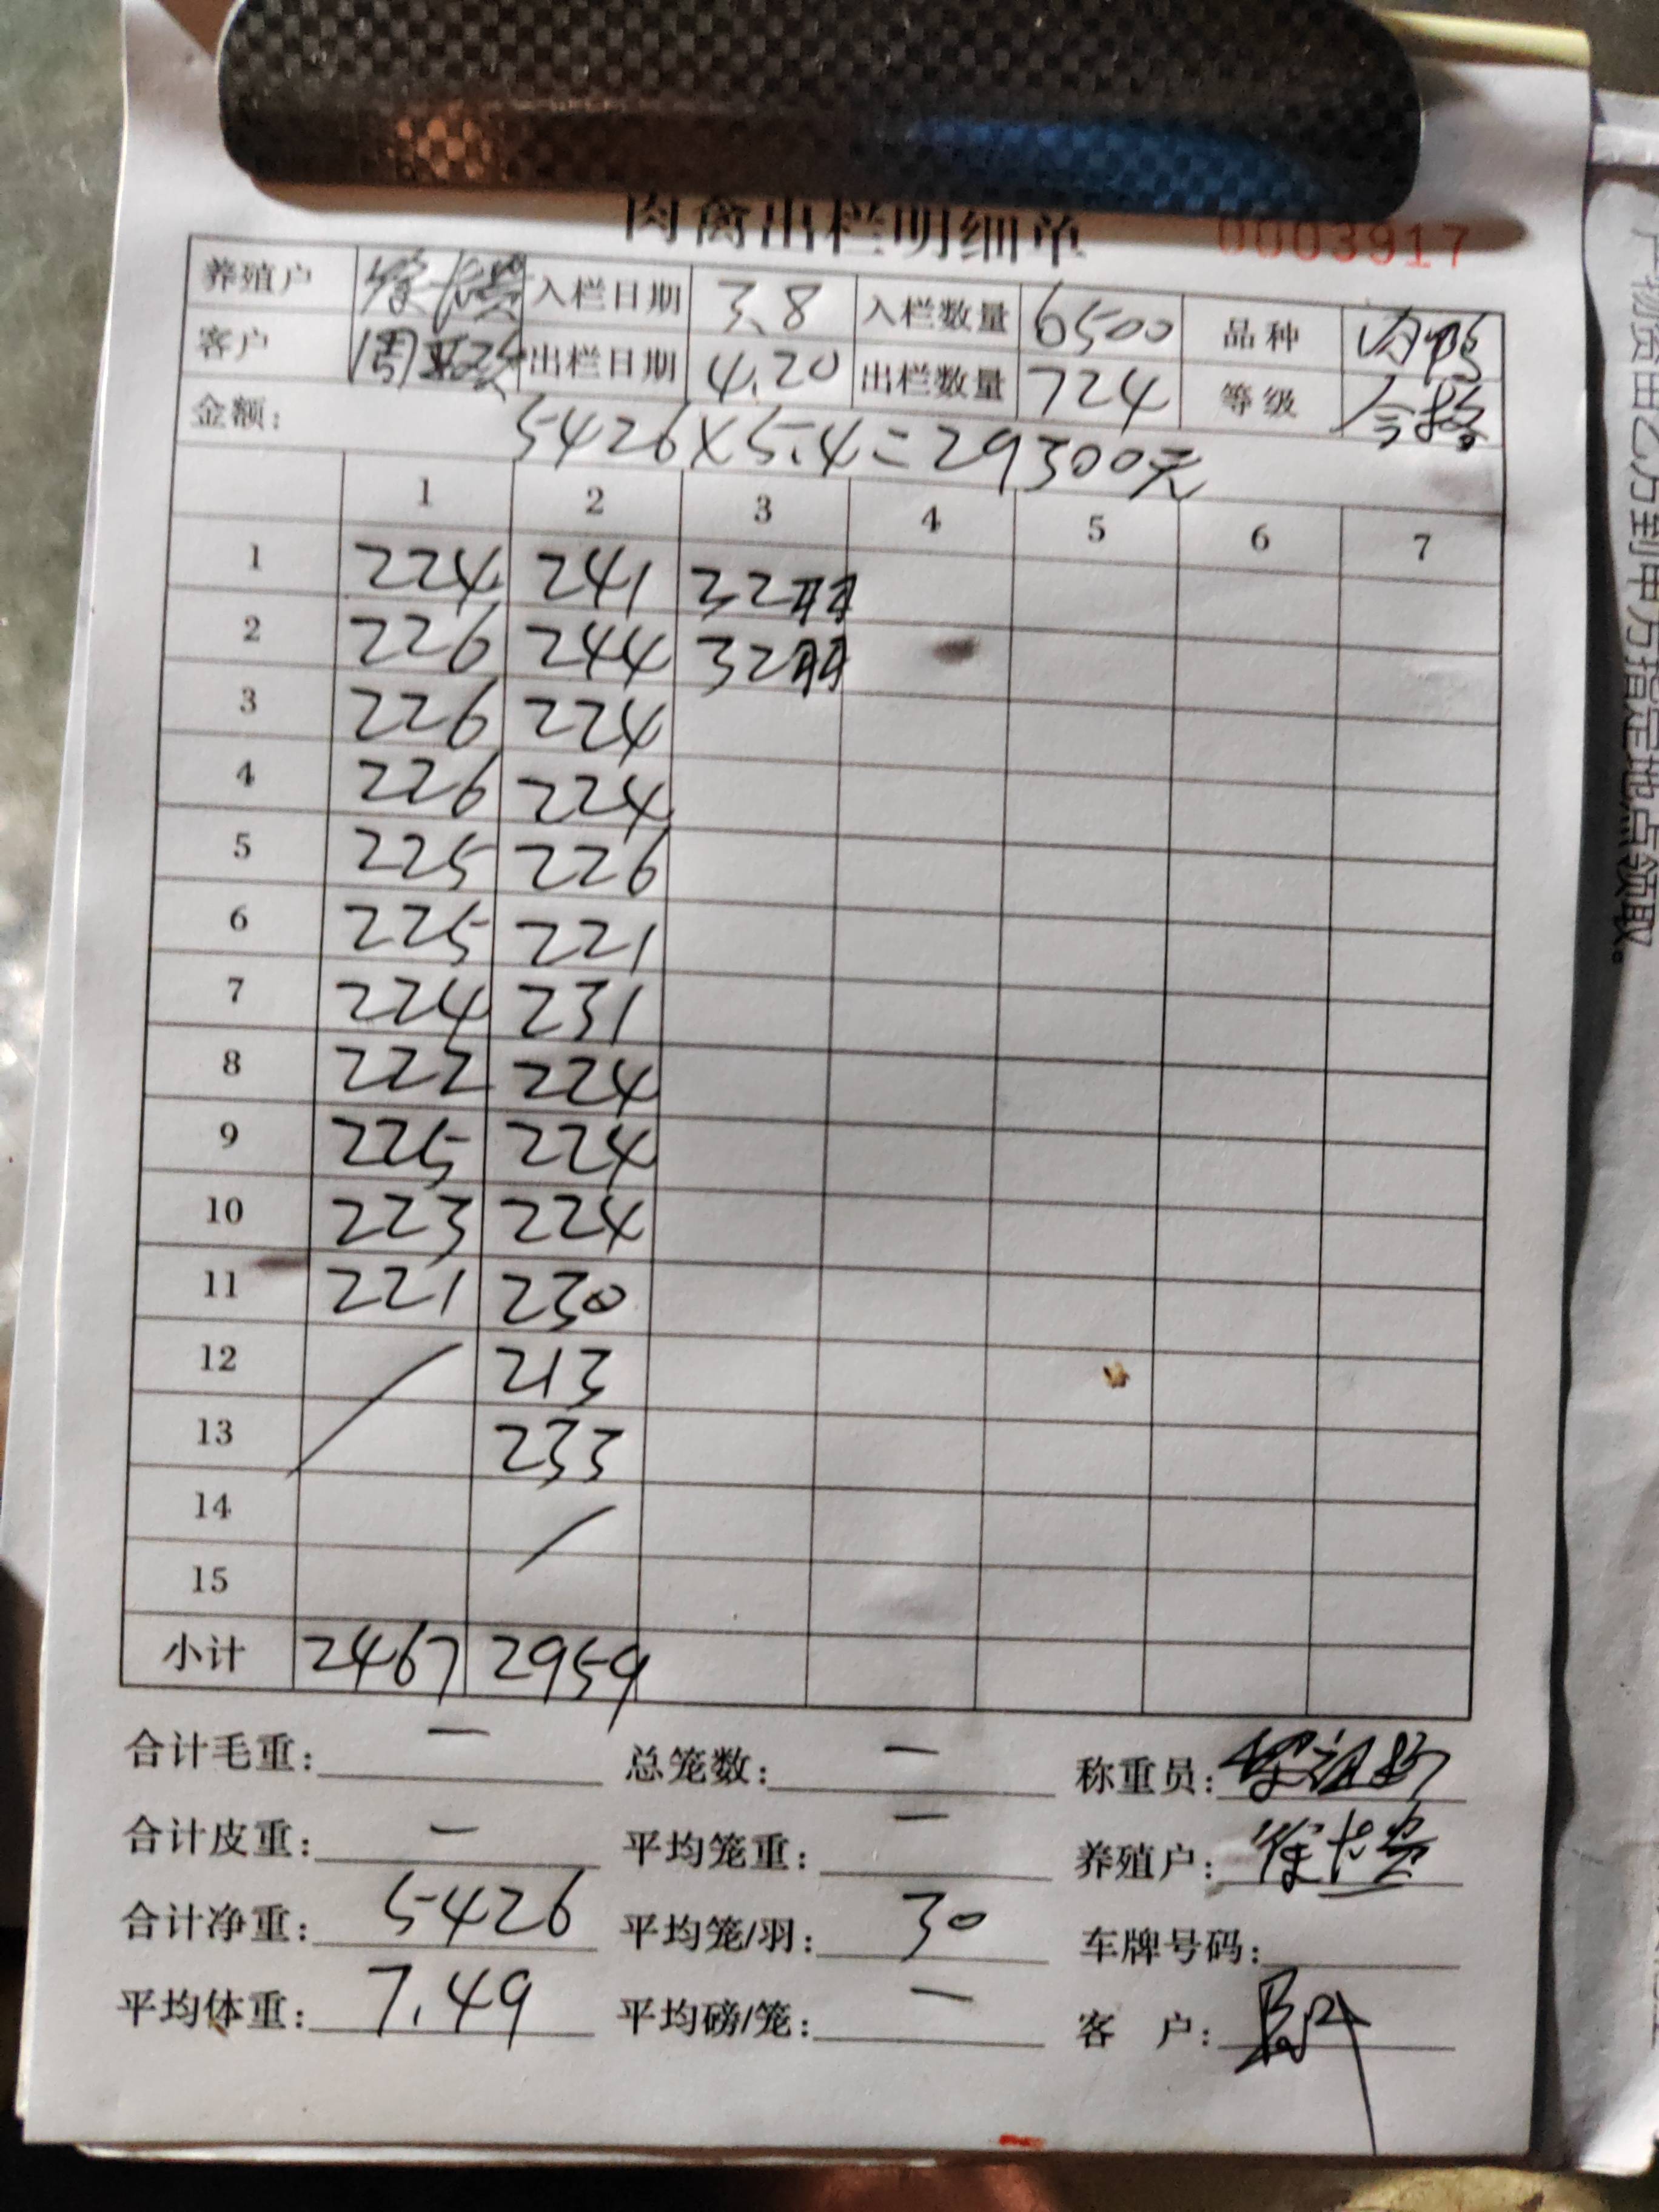 肉禽出栏明细单 0003917
养殖户 入栏日期 3.8 入栏数量 6500 品种 肉鸭
客户 出栏日期 4.20 出栏数量 724 等级 合格
金额: 5426×5.4=29300元
1 2 3 4 5 6 7
1 224 241 32羽
2 226 244 32羽
3 226 224
4 226 224
5 225 226
6 225 221
7 224 231
8 222 224
9 225 224
10 223 224
11 221 230
12 213
13 233
14
15
小计 2467 2959
合计毛重: — 总笼数: — 称重员:
合计皮重: — 平均笼重: — 养殖户:
合计净重: 5426 平均笼/羽: 30 车牌号码:
平均体重: 7.49 平均磅/笼: — 客户:
户物资由乙方到甲方指定地点领取。